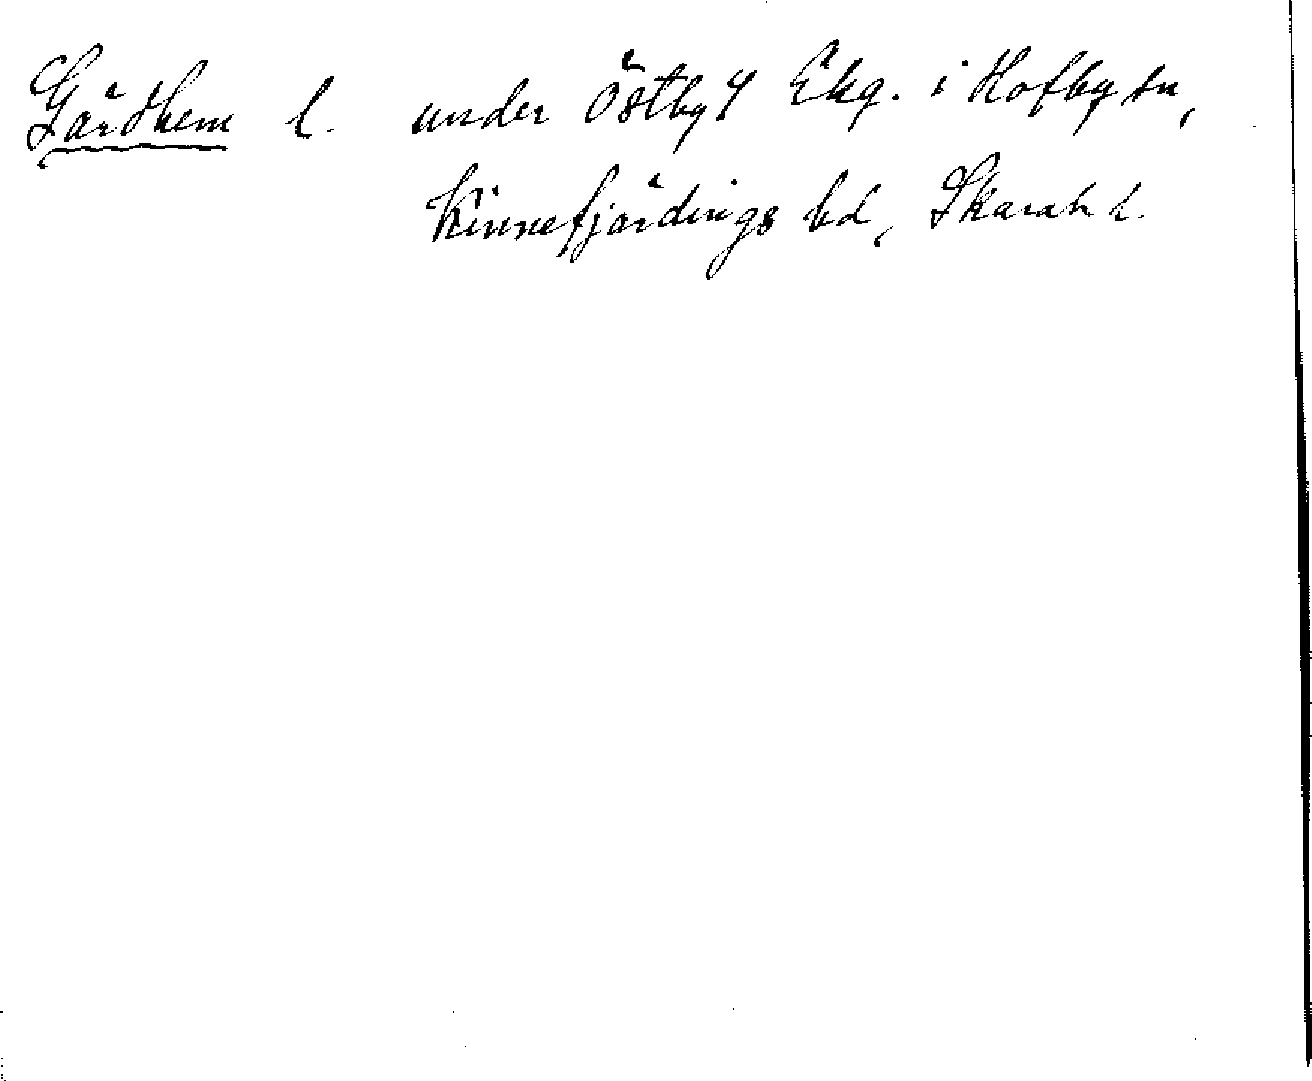 Gärdhem l. under Östby 4 Ekg. i Hofby sn,
Kinnefjärdings hd, Skarab. l.